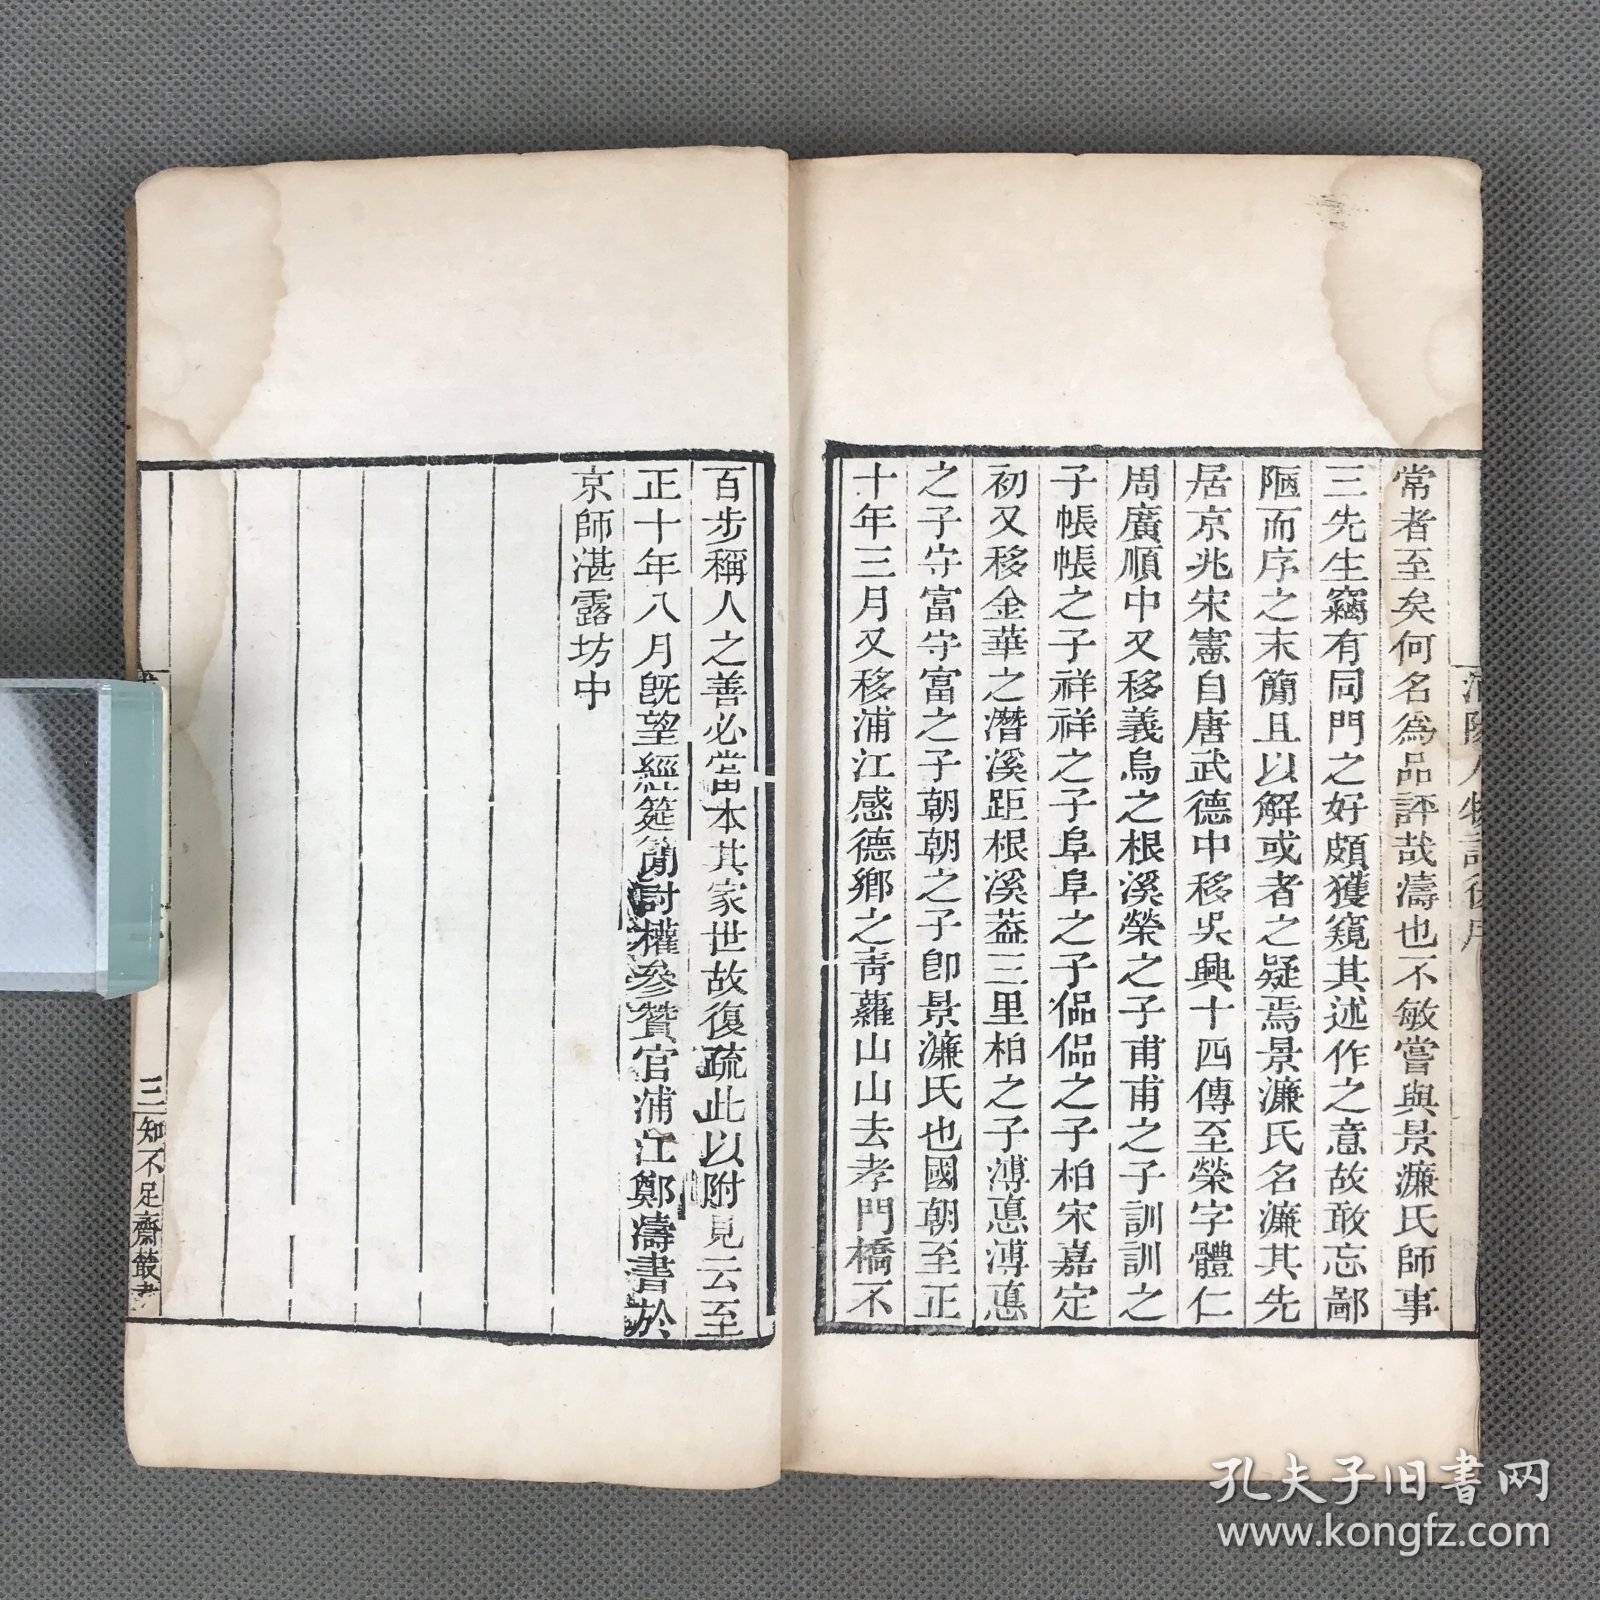 常者至矣何名為品評哉濤也不敏嘗與景濂氏師事
三先生竊有同門之好頗獲窺其述作之意故敢忘鄙
陋而序之末簡且以解或者之疑焉景濂氏名濂其先
居京兆宋憲自唐武德中移吳興十四傳至榮字體仁
周廣順中又移義烏之根溪榮之子甫甫之子訓訓之
子帳帳之子祥祥之子阜阜之子偘偘之子柏宋嘉定
初又移金華之潛溪距根溪葢三里柏之子溥悳溥悳
之子守富守富之子朝朝之子卽景濂氏也國朝至正
十年三月又移浦江感德鄉之青蘿山山去孝門橋不
百步稱人之善必當本其家世故復疏此以附見云至
正十年八月旣望經筵
權參贊官浦江鄭濤書於
京師湛露坊中
三
知不足齋叢書
孔夫子旧书网
www.kongfz.com